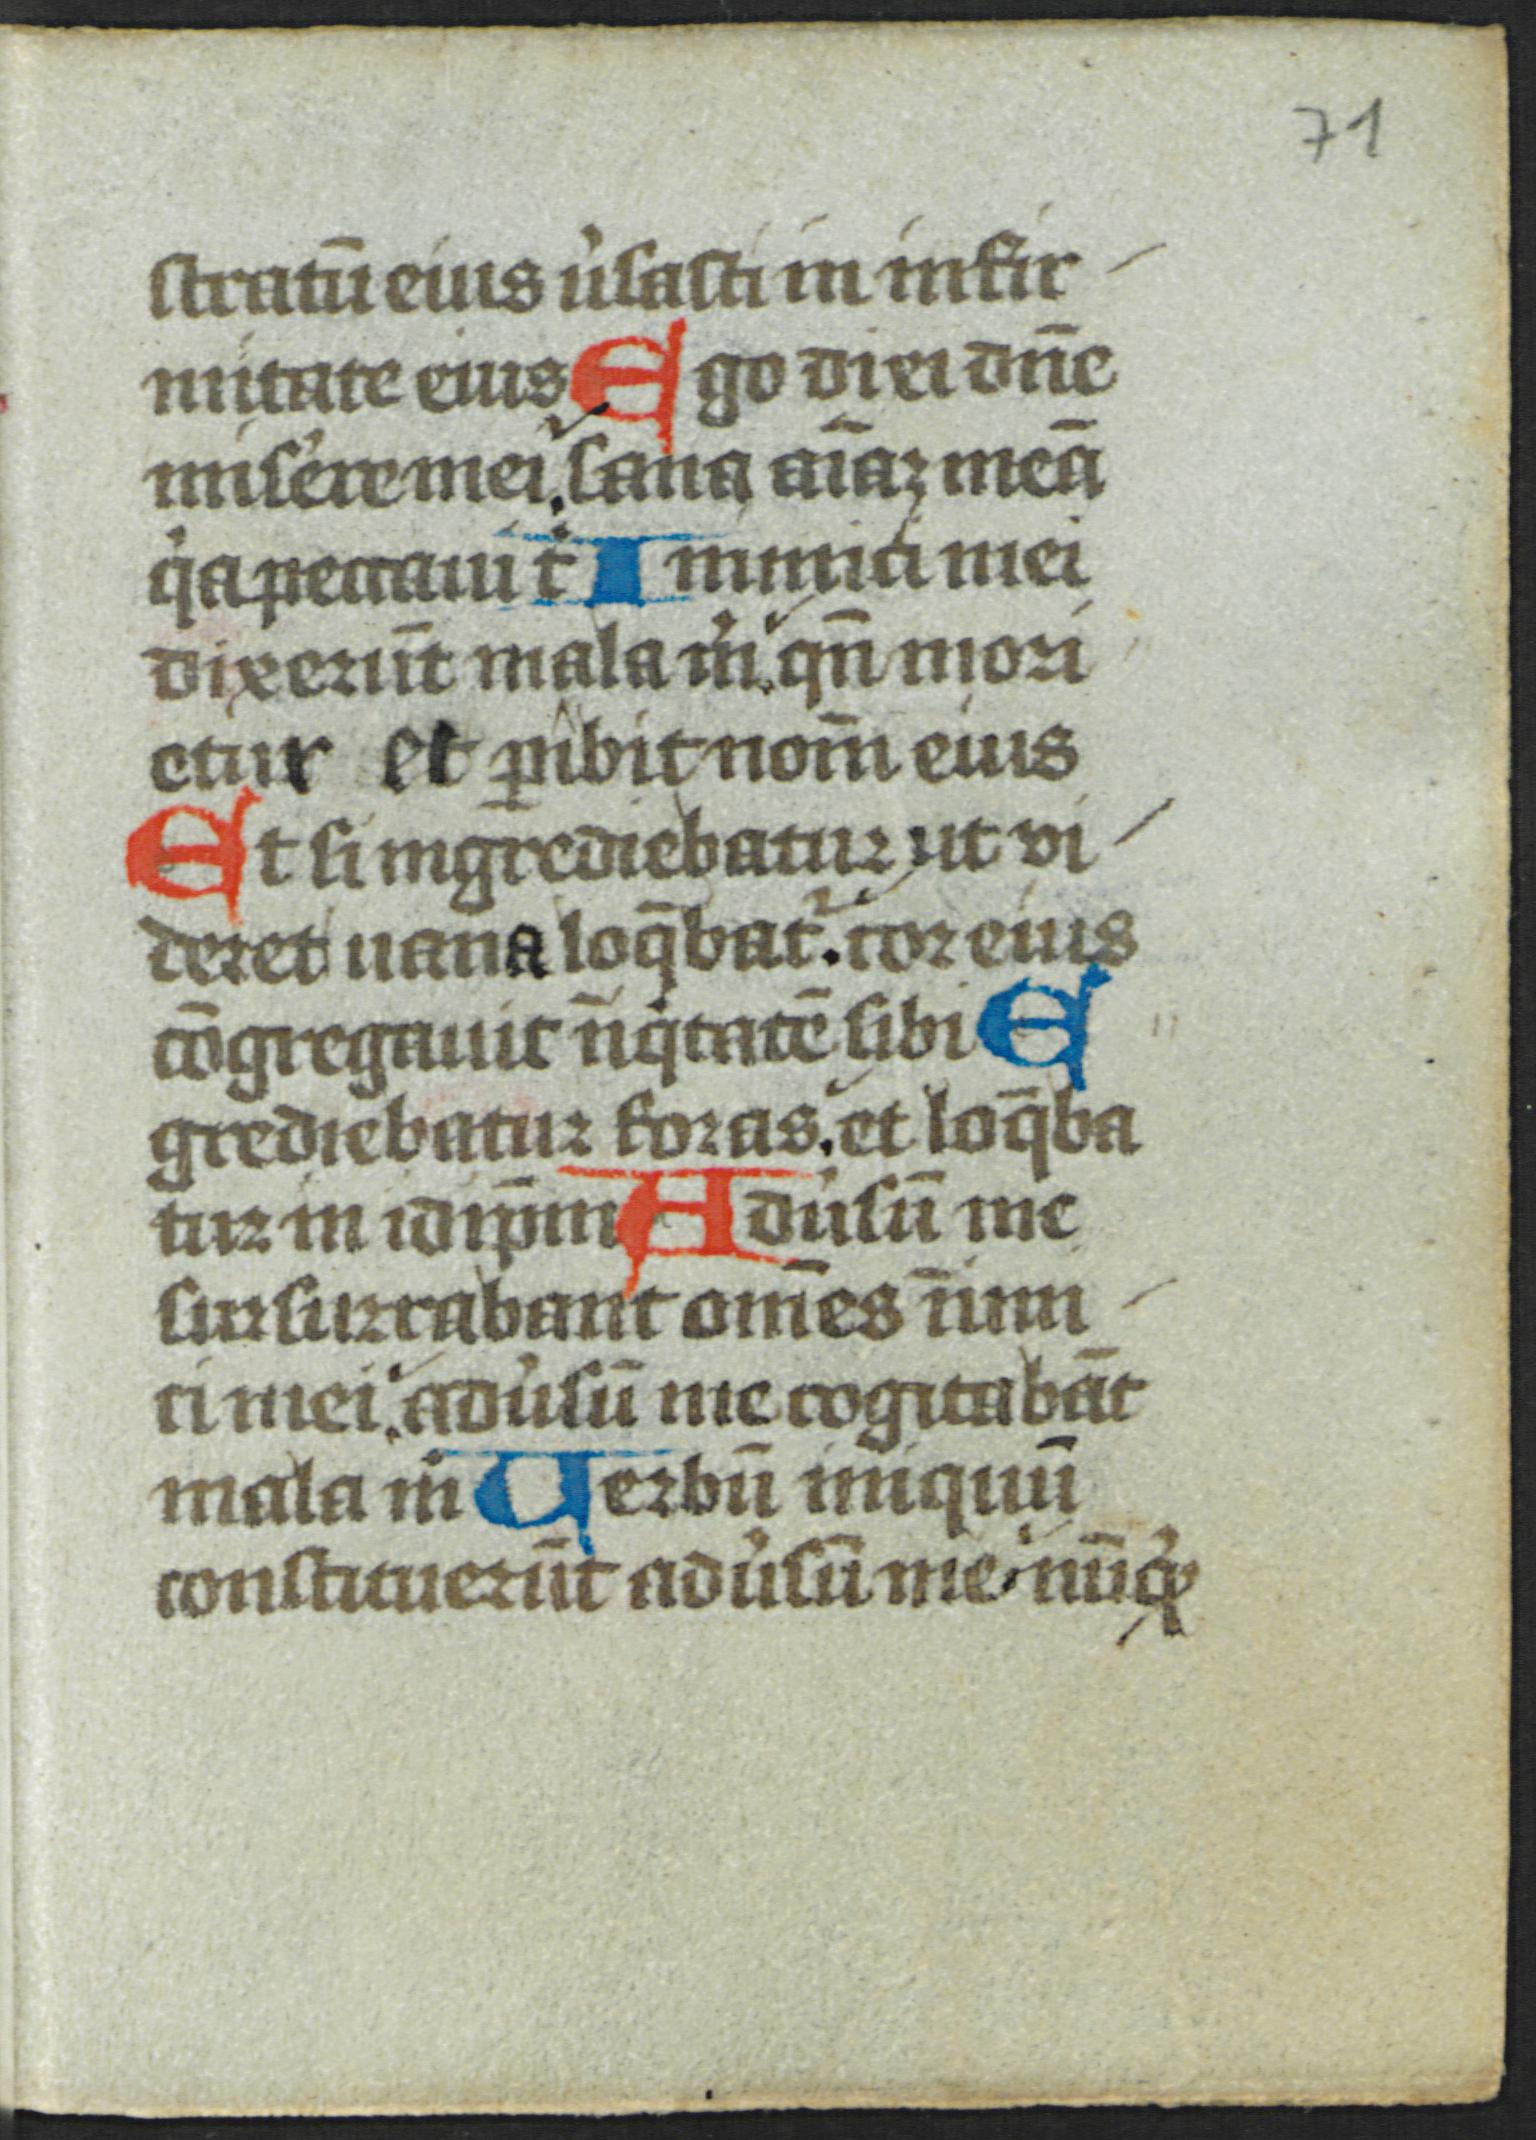 71
stratū eius u̓sasti in infir
mitate eius Ego dixi dn̄e
miserere mei. sana aīaꝫ meā
q̓a peccaui t̓ Inimici mei
dixerūt mala m̓. qn̄ mori
etur et ꝑibit nom̄ eius
Et si ingrediebatur ut vi
deret uana loq̄bat᷑. cor eius
cōgregauit īiq̓tatē sibi E
grediebatur foras. et loq̄ba
tur in idip̄m Adu̓sū me
sursurrabant om̄es īimi
ci mei. adu̓sū me cogitabāt
mala m̓ Uerbū iniquū
constituerūt adu̓sū me. nūq̓